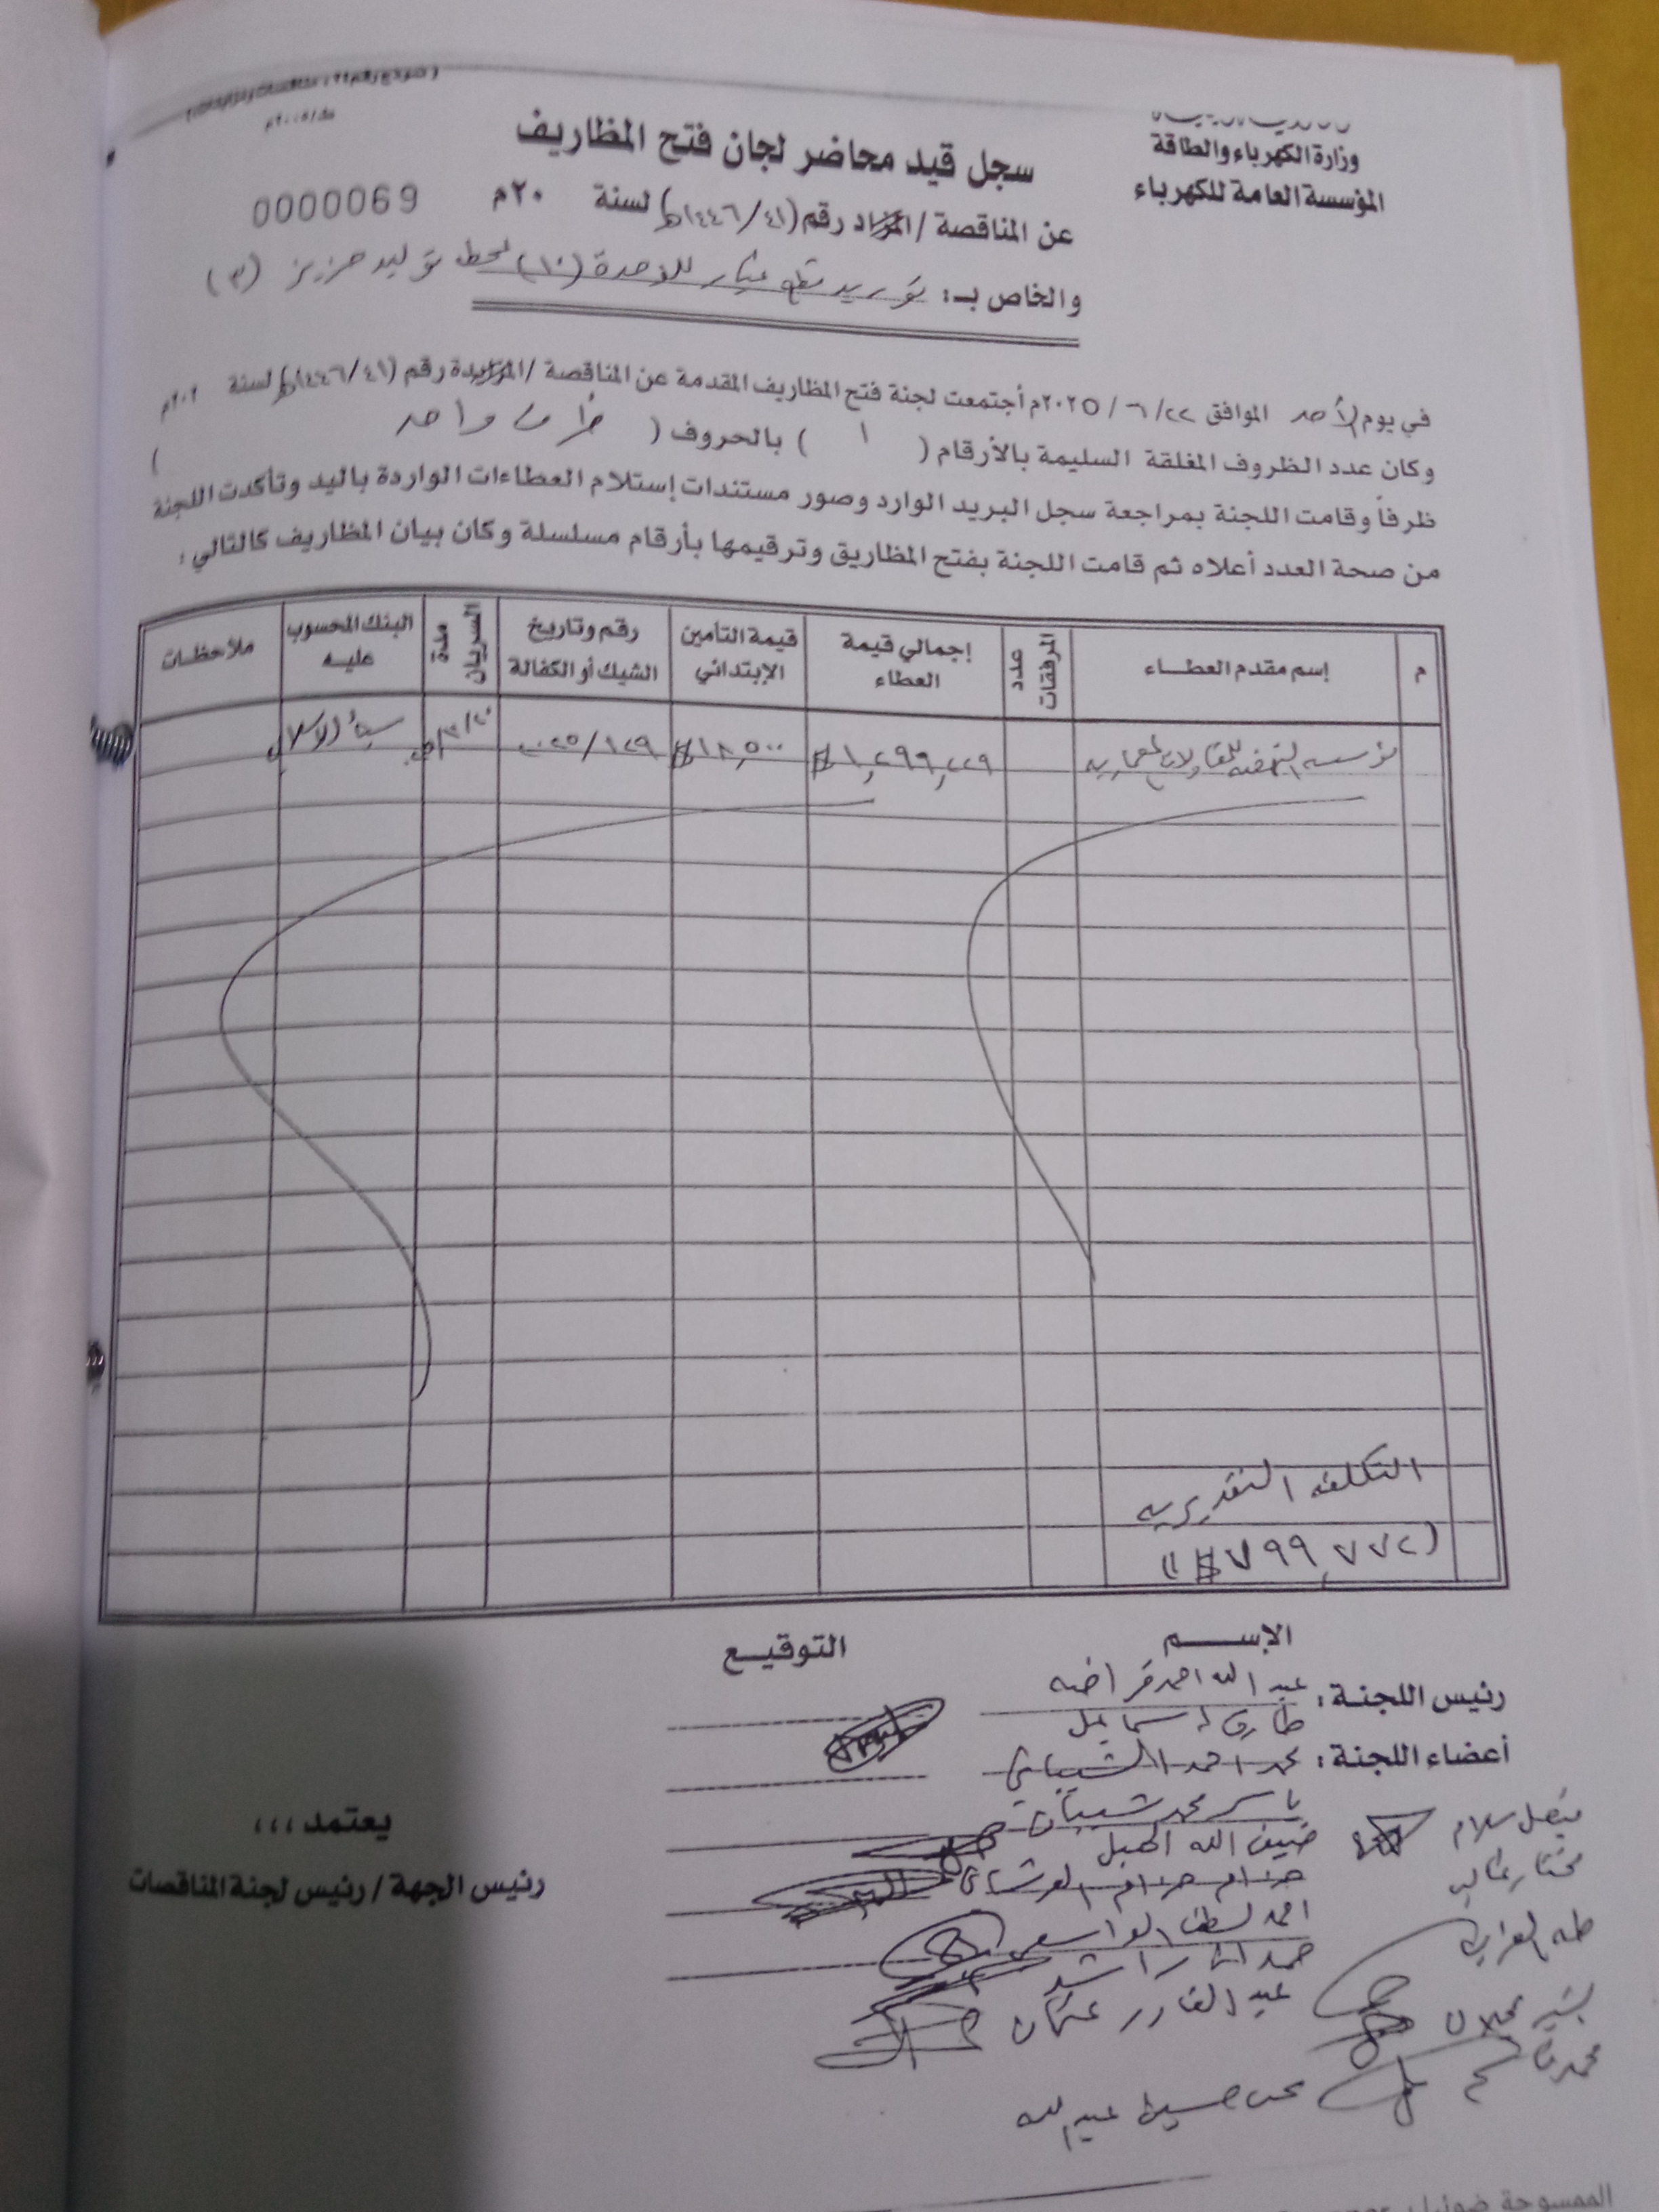 وزارة الكهرباء والطاقة
المؤسسة العامة للكهرباء
سجل قيد محاضر لجان فتح المظاريف
0000069
عن المناقصة / المزاد رقم (٤١/١٤٤٦هـ) لسنة ٢٠م
والخاص بـ: توريد قطع غيار للوحدة (١٠) لمحطة توليد حزيز (٣)
في يوم الأحد الموافق ٢٢/٦/٢٠٢٥م أجتمعت لجنة فتح المظاريف المقدمة عن المناقصة / المزايدة رقم (٤١/١٤٤٦هـ) لسنة ٢٠٢م
وكان عدد الظروف المغلقة السليمة بالأرقام ( ١ ) بالحروف ( واحد )
ظرفاً وقامت اللجنة بمراجعة سجل البريد الوارد وصور مستندات إستلام العطاءات الواردة باليد وتأكدت اللجنة
من صحة العدد أعلاه ثم قامت اللجنة بفتح المظاريق وترقيمها بأرقام مسلسلة وكان بيان المظاريف كالتالي :
م إسم مقدم العطـاء عدد المرفقات إجمالي قيمة العطاء قيمة التأمين الإبتدائي رقم وتاريخ الشيك أو الكفالة مدة السريان البنك المحسوب عليه ملاحظات
مؤسسه النهضه للمقاولات المعماريه $١,٢٩٩,٢٢٩ $١٨,٥٠٠ ٢٠٢٥/١٢٩ سبأ الإسلامي
التكلفه التقديريه
(٧٩٩,٧٧٢$)
الإســـم التوقيـع
رئيس اللجنـة : عبد الله احمد قراضه
طارق اسماعيل
أعضاء اللجنة : محمد احمد الشيباني
ياسر محمد شيبان
ضيف الله الهبل
حزام حزام
احمد لطف الواسعي
حمدان راشد
عبد القادر عثمان
حسين عبدالله
فيصل سلام
مختار غالب
طه
بشير عجلان
محمد
يعتمد ،،،
رئيس الجهة / رئيس لجنة المناقصات
الممسوحة ضوئيا بـ